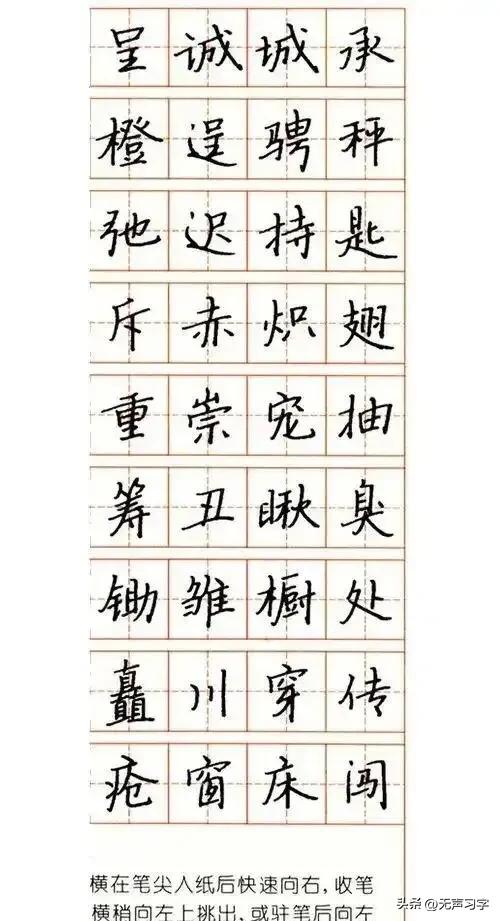 呈诚城承
橙逞骋秤
弛迟持匙
斥赤炽翅
重崇宠抽
筹丑瞅臭
锄雏橱处
矗川穿传
疮窗床闯
横在笔尖入纸后快速向右,收笔
横稍向左上挑出,或驻笔后向左
头条 @无声习字